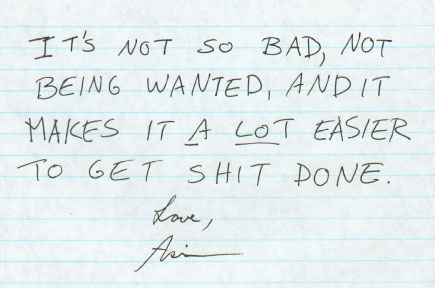 IT'S NOT SO BAD, NOT
BEING WANTED, AND IT
MAKES IT A LOT EASIER
TO GET SHIT DONE.
Love,